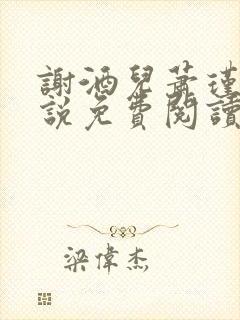 謝酒兒蕭瑾
說免費閱讀
梁偉杰